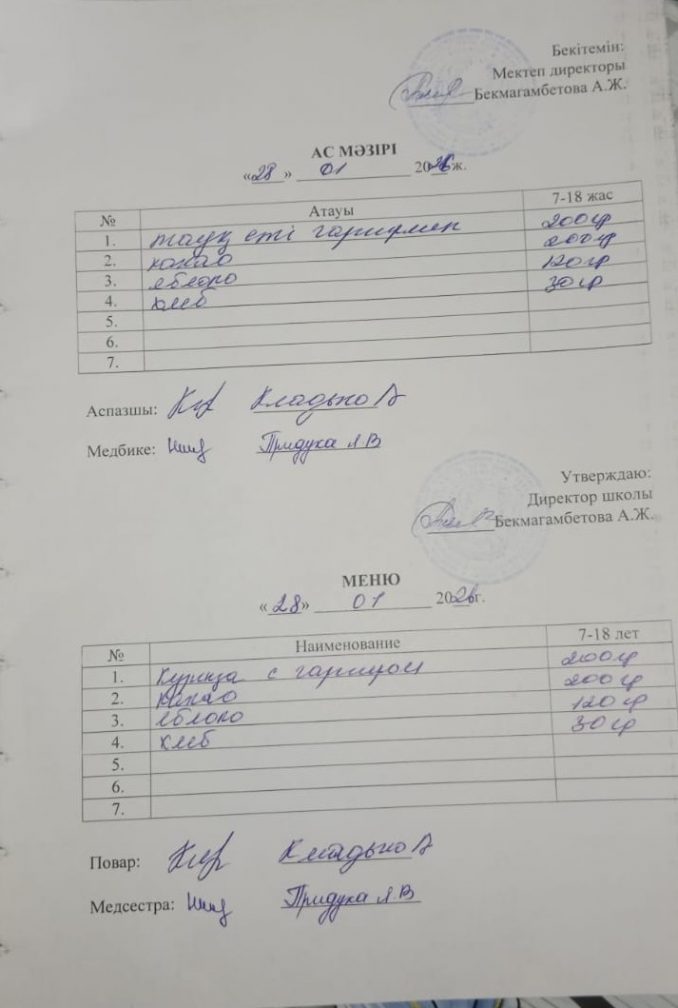 Бекітемін:
Мектеп директоры
Бекмагамбетова А.Ж.
АС МӘЗІРІ
«28» 01 2026 ж.
№ Атауы 7-18 жас
1. тауық еті гарнирмен 200гр
2. какао 200гр
3. яблоко 120гр
4. хлеб 30гр
5.
6.
7.
Аспазшы: Кладько В
Медбике: Придуха Л.В
Утверждаю:
Директор школы
Бекмагамбетова А.Ж.
МЕНЮ
«28» 01 2026г.
№ Наименование 7-18 лет
1. Курица с гарниром 200гр
2. какао 200гр
3. яблоко 120гр
4. хлеб 30гр
5.
6.
7.
Повар: Кладько В
Медсестра: Придуха Л.В